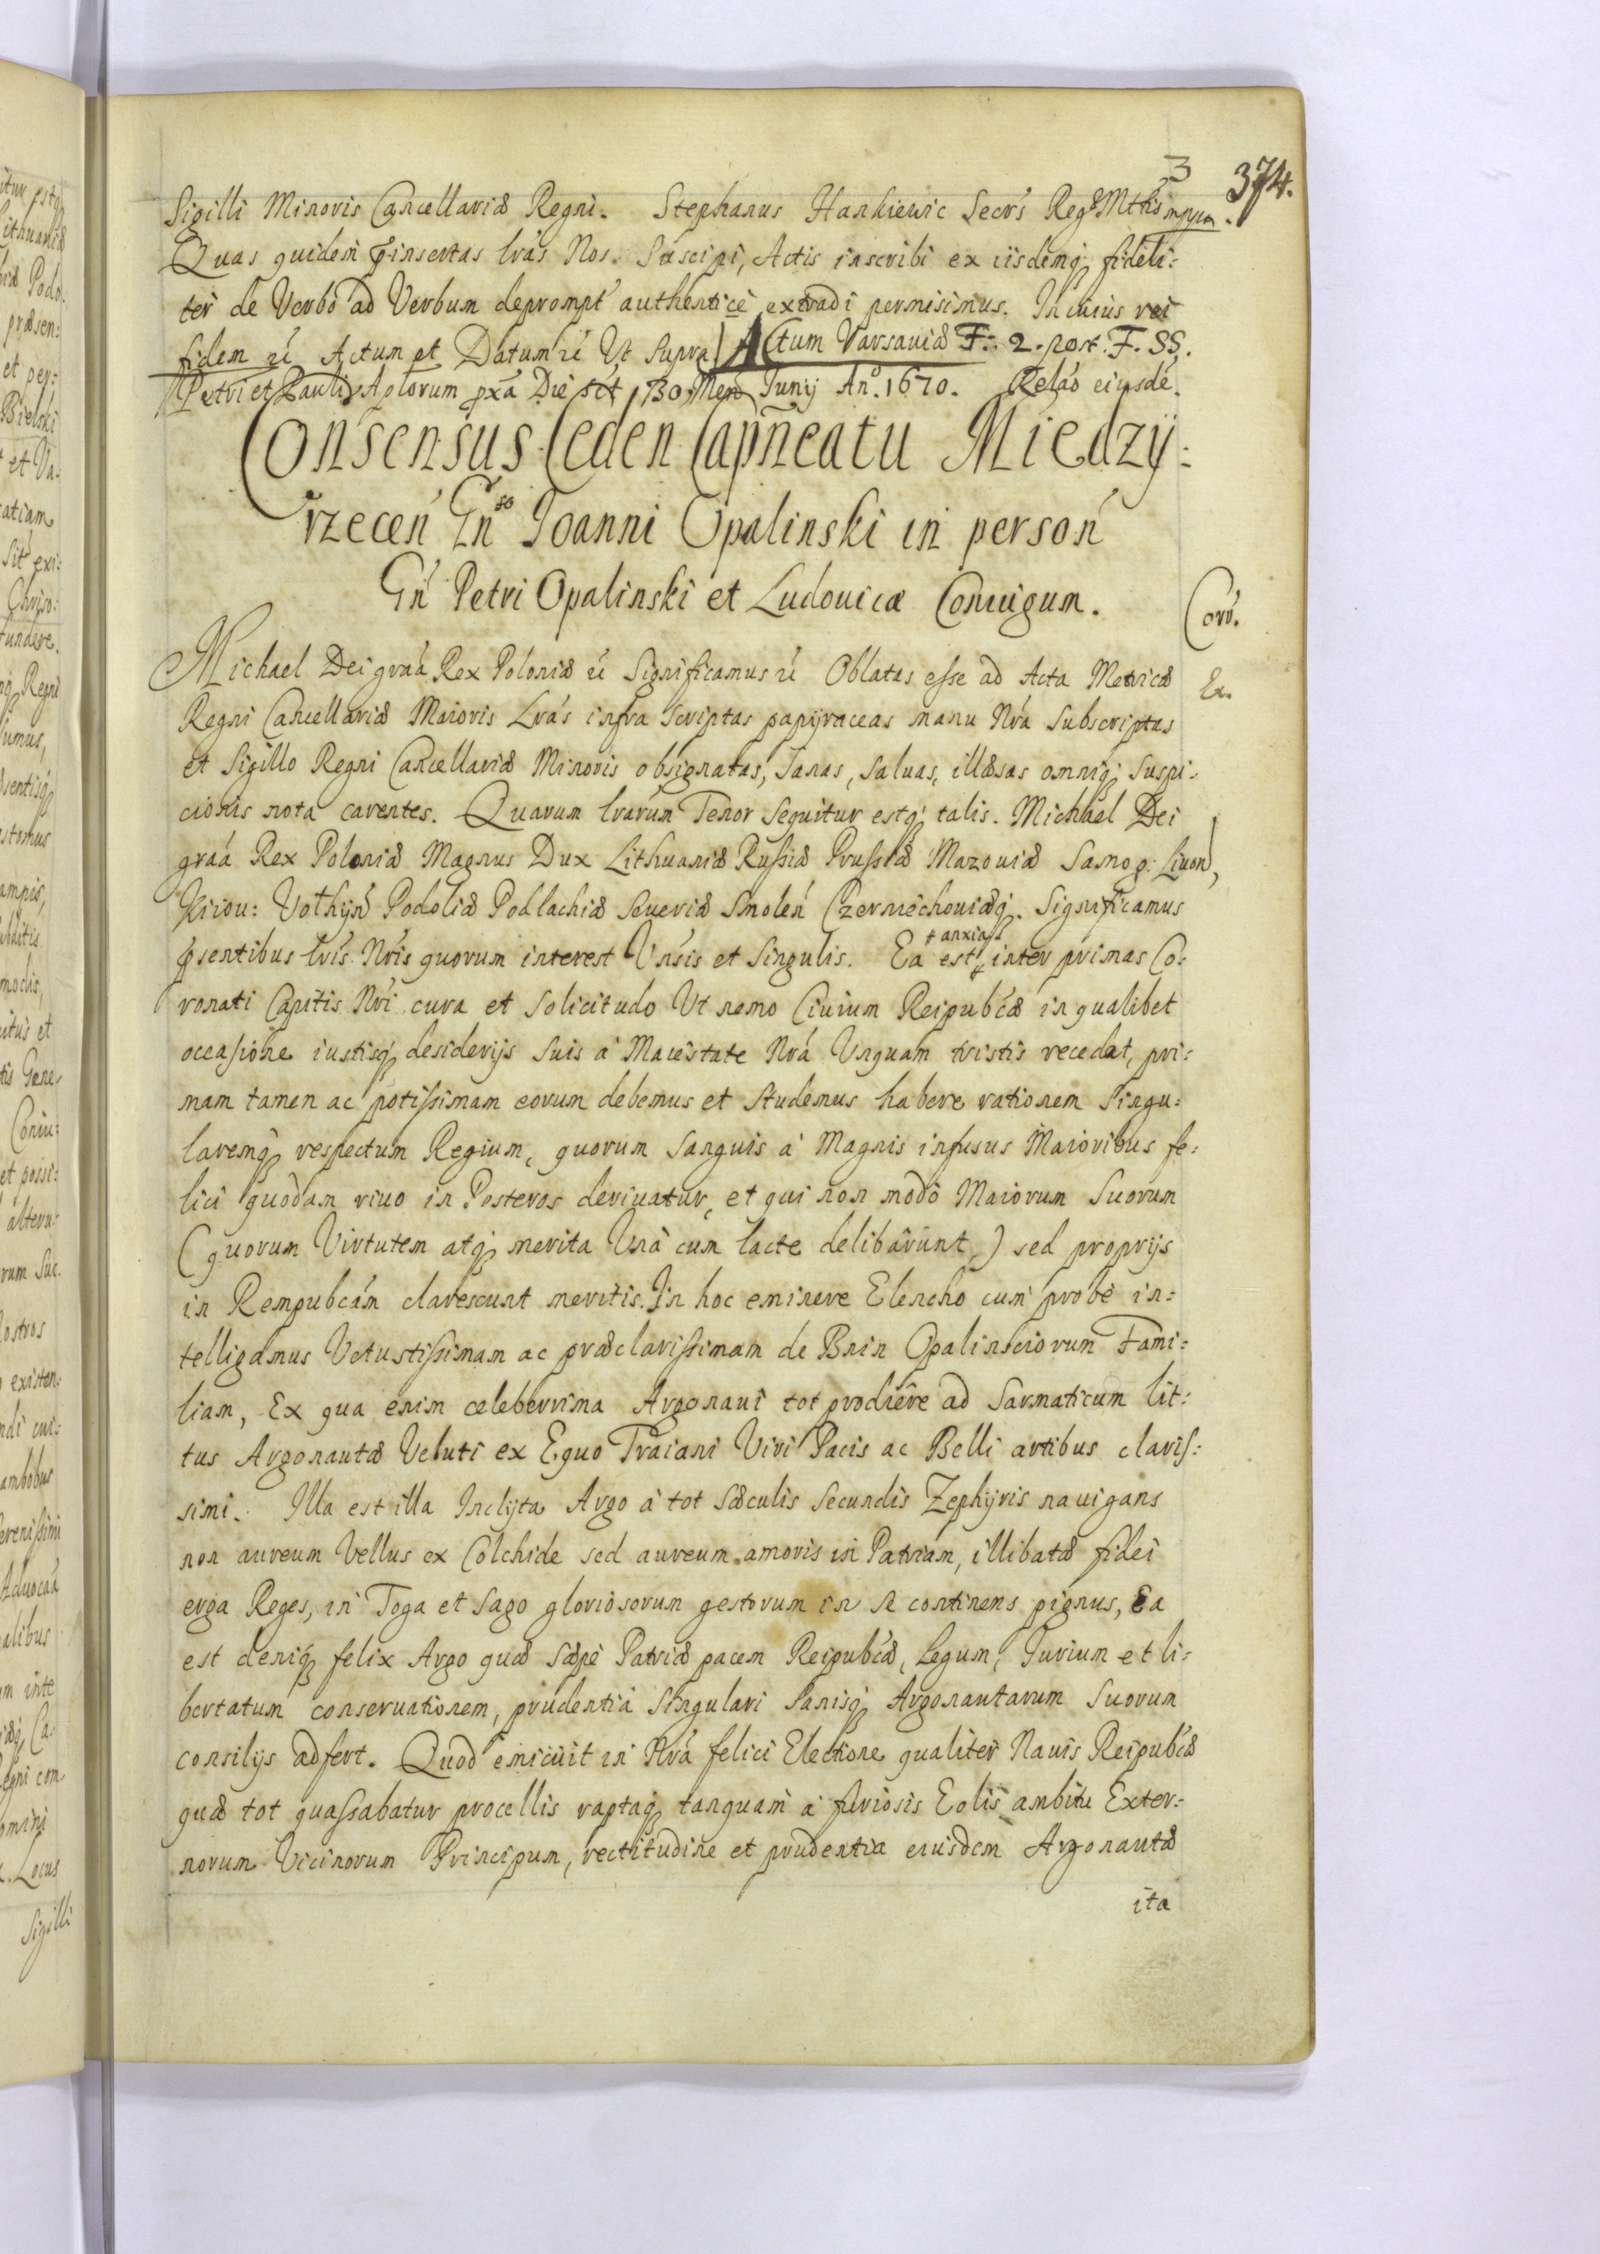 3 374.
Sigilli Minoris Cancellariæ Regni. Stephanus Hankiewic Secrs Regæ Mttis mppa.
Quas quidem pinsertas lras Nos. Suscipi, Actis inscribi ex iisdemq; fideli:
ter de Verbo ad Verbum deprompt authentice extradi permisimus. In cuius rei
fidem etc Actum et Datum etc Ut supra) Actum Varsaviæ F. 2. post. F. SS.
Petri et Pauli Aplorum pxa Die sct 30 Men Junij An° 1670. Relao eiusde.
Consensus Ceden Capneatu Miedzÿ:
rzecen Gnso Joanni Opalinski in person
Gn Petri Opalinski et Ludovicæ Coniugum.
Corr.
Michael Dei graa Rex Poloniæ etc Significamus etc Oblatas esse ad Acta Metricæ
Ex.
Regni Cancellariæ Maioris Lras infra scriptas papijraceas manu Nra subscriptas
et Sigillo Regni Cancellariæ Minoris obsignatas, sanas, salvas, illæsas omniq; suspi:
cionis nota carentes. Quarum lrarum Tenor sequitur estq; talis. Michael Dei
graa Rex Poloniæ Magnus Dux Lithuaniæ Russiæ Prussiæ Mazoviæ Samog: Livon,
Kiiou: Volhijn Podoliæ Podlachiæ Seueriæ Smolen Czerniechouiæq. Significamus
psentibus lris Nris quorum interest Unsis et Singulis. Ea est inter primas Co:
+ anxia
ronati Capitis Nri cura et solicitudo Ut nemo Civium Reipubcæ in qualibet
occasione iustisq; desiderijs suis a Maiestate Nra Unquam tristis recedat, pri:
mam tamen ac potissimam eorum debemus et studemus habere rationem singu:
laremq; respectum Regium, quorum sanguis a Magnis infusus Maioribus fe:
lici quodam rivo in Posteros derivatur, et qui non modo Maiorum Suorum
(quorum Virtutem atq; merita Una cum lacte delibarunt,) sed proprijs
in Rempubcam clarescunt meritis. In hoc eminere Elencho cum probe in:
telligamus Vetustissimam ac præclarissimam de Bnin Opalinsciorum Fami:
liam, Ex qua enim celeberrima Argonavi tot prodiere ad Sarmaticum lit:
tus Argonautæ Veluti ex Equo Traiani Viri Pacis ac Belli artibus claris:
simi. Illa est illa Inclyta Argo a tot sæculis secundis Zephijris navigans
non aureum Vellus ex Colchide sed aureum amoris in Patriam, illibatæ fidei
erga Reges, in Toga et Sago gloriosorum gestorum in se continens pignus, Ea
est deniq; felix Argo quæ sæpe Patriæ pacem Reipubcæ, Legum, Jurium et li:
bertatum conservationem, prudentia singulari sanisq; Argonautarum Suorum
consilijs adfert. Quod emicuit in Nra felici Electione qualiter Navis Reipubcæ
quæ tot quassabatur procellis raptaq; tanquam a furiosis Eolis ambitu Exter:
norum Vicinorum Principum, rectitudine et prudentia eiusdem Argonautæ
ita